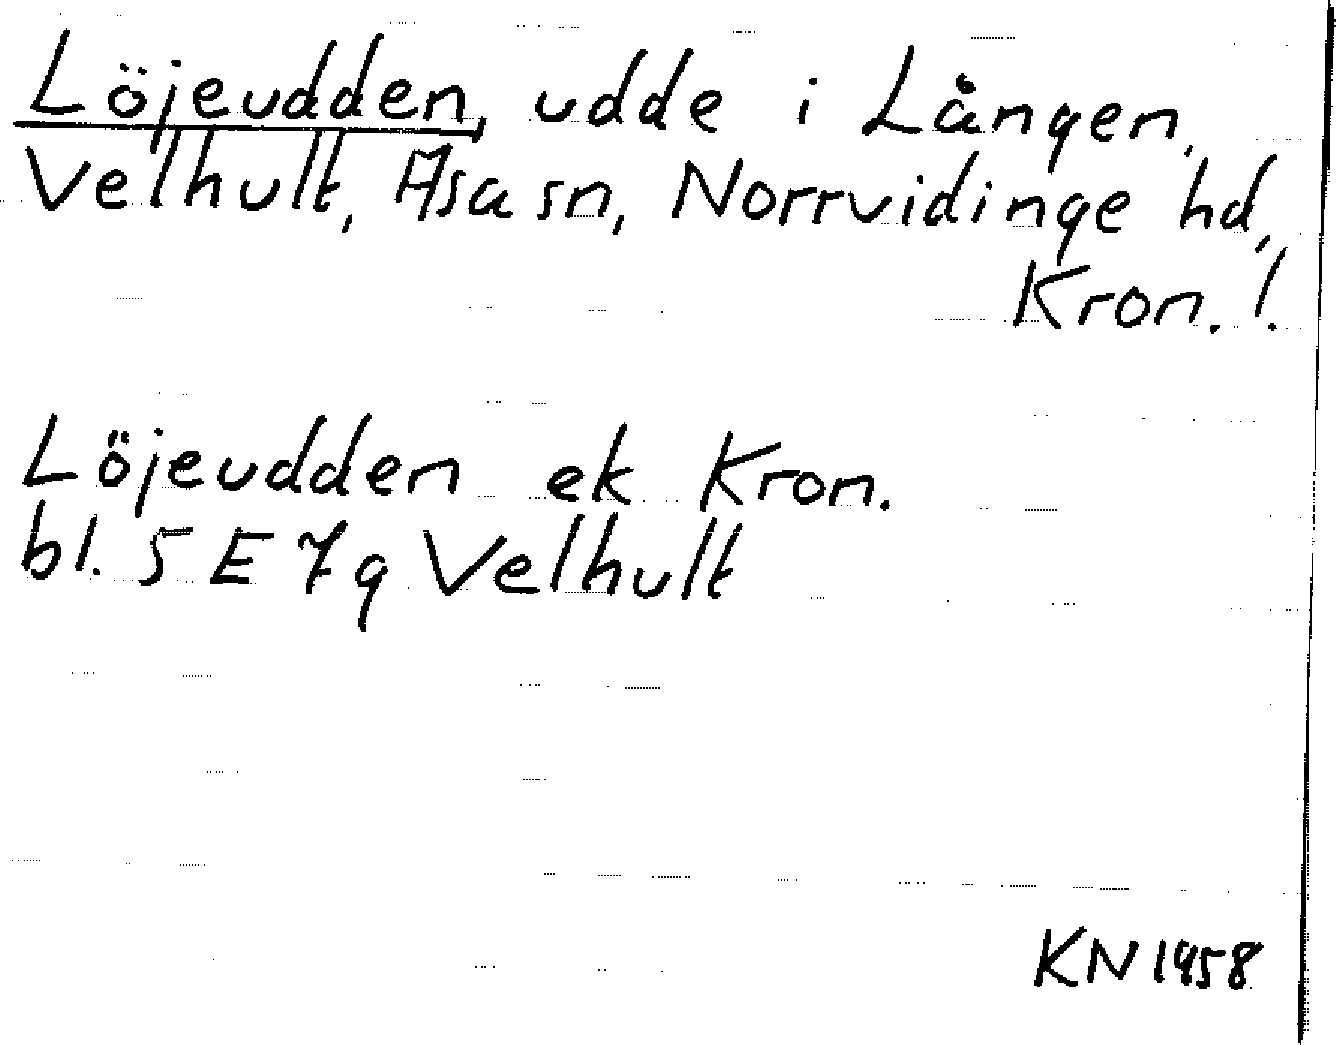 Löjeudden, udde i Lången,
Velhult, Asa sn, Norrvidinge hd,
Kron. l.
Löjeudden ek Kron.
bl. 5 E 7g Velhult
KN 1958